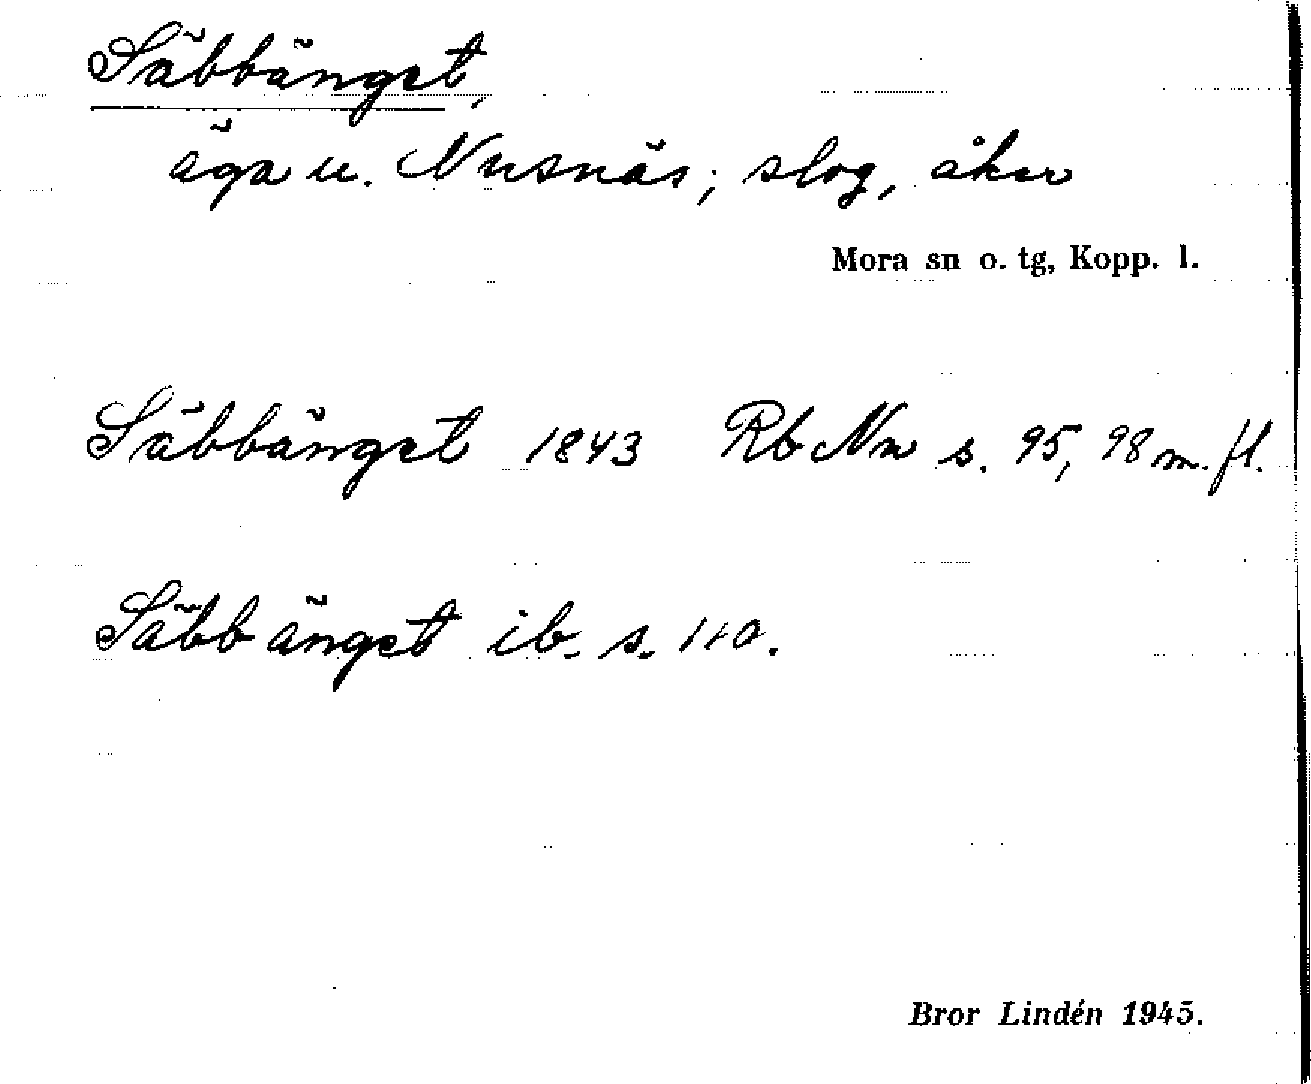 Säbbänget,
äga u. Nusnäs; slog, åker
Mora sn o. tg, Kopp. l.
Säbbänget 1843 Rb Nn s. 95, 98 m. fl.
Säbb änget ib. s. 110.
Bror Lindén 1945.